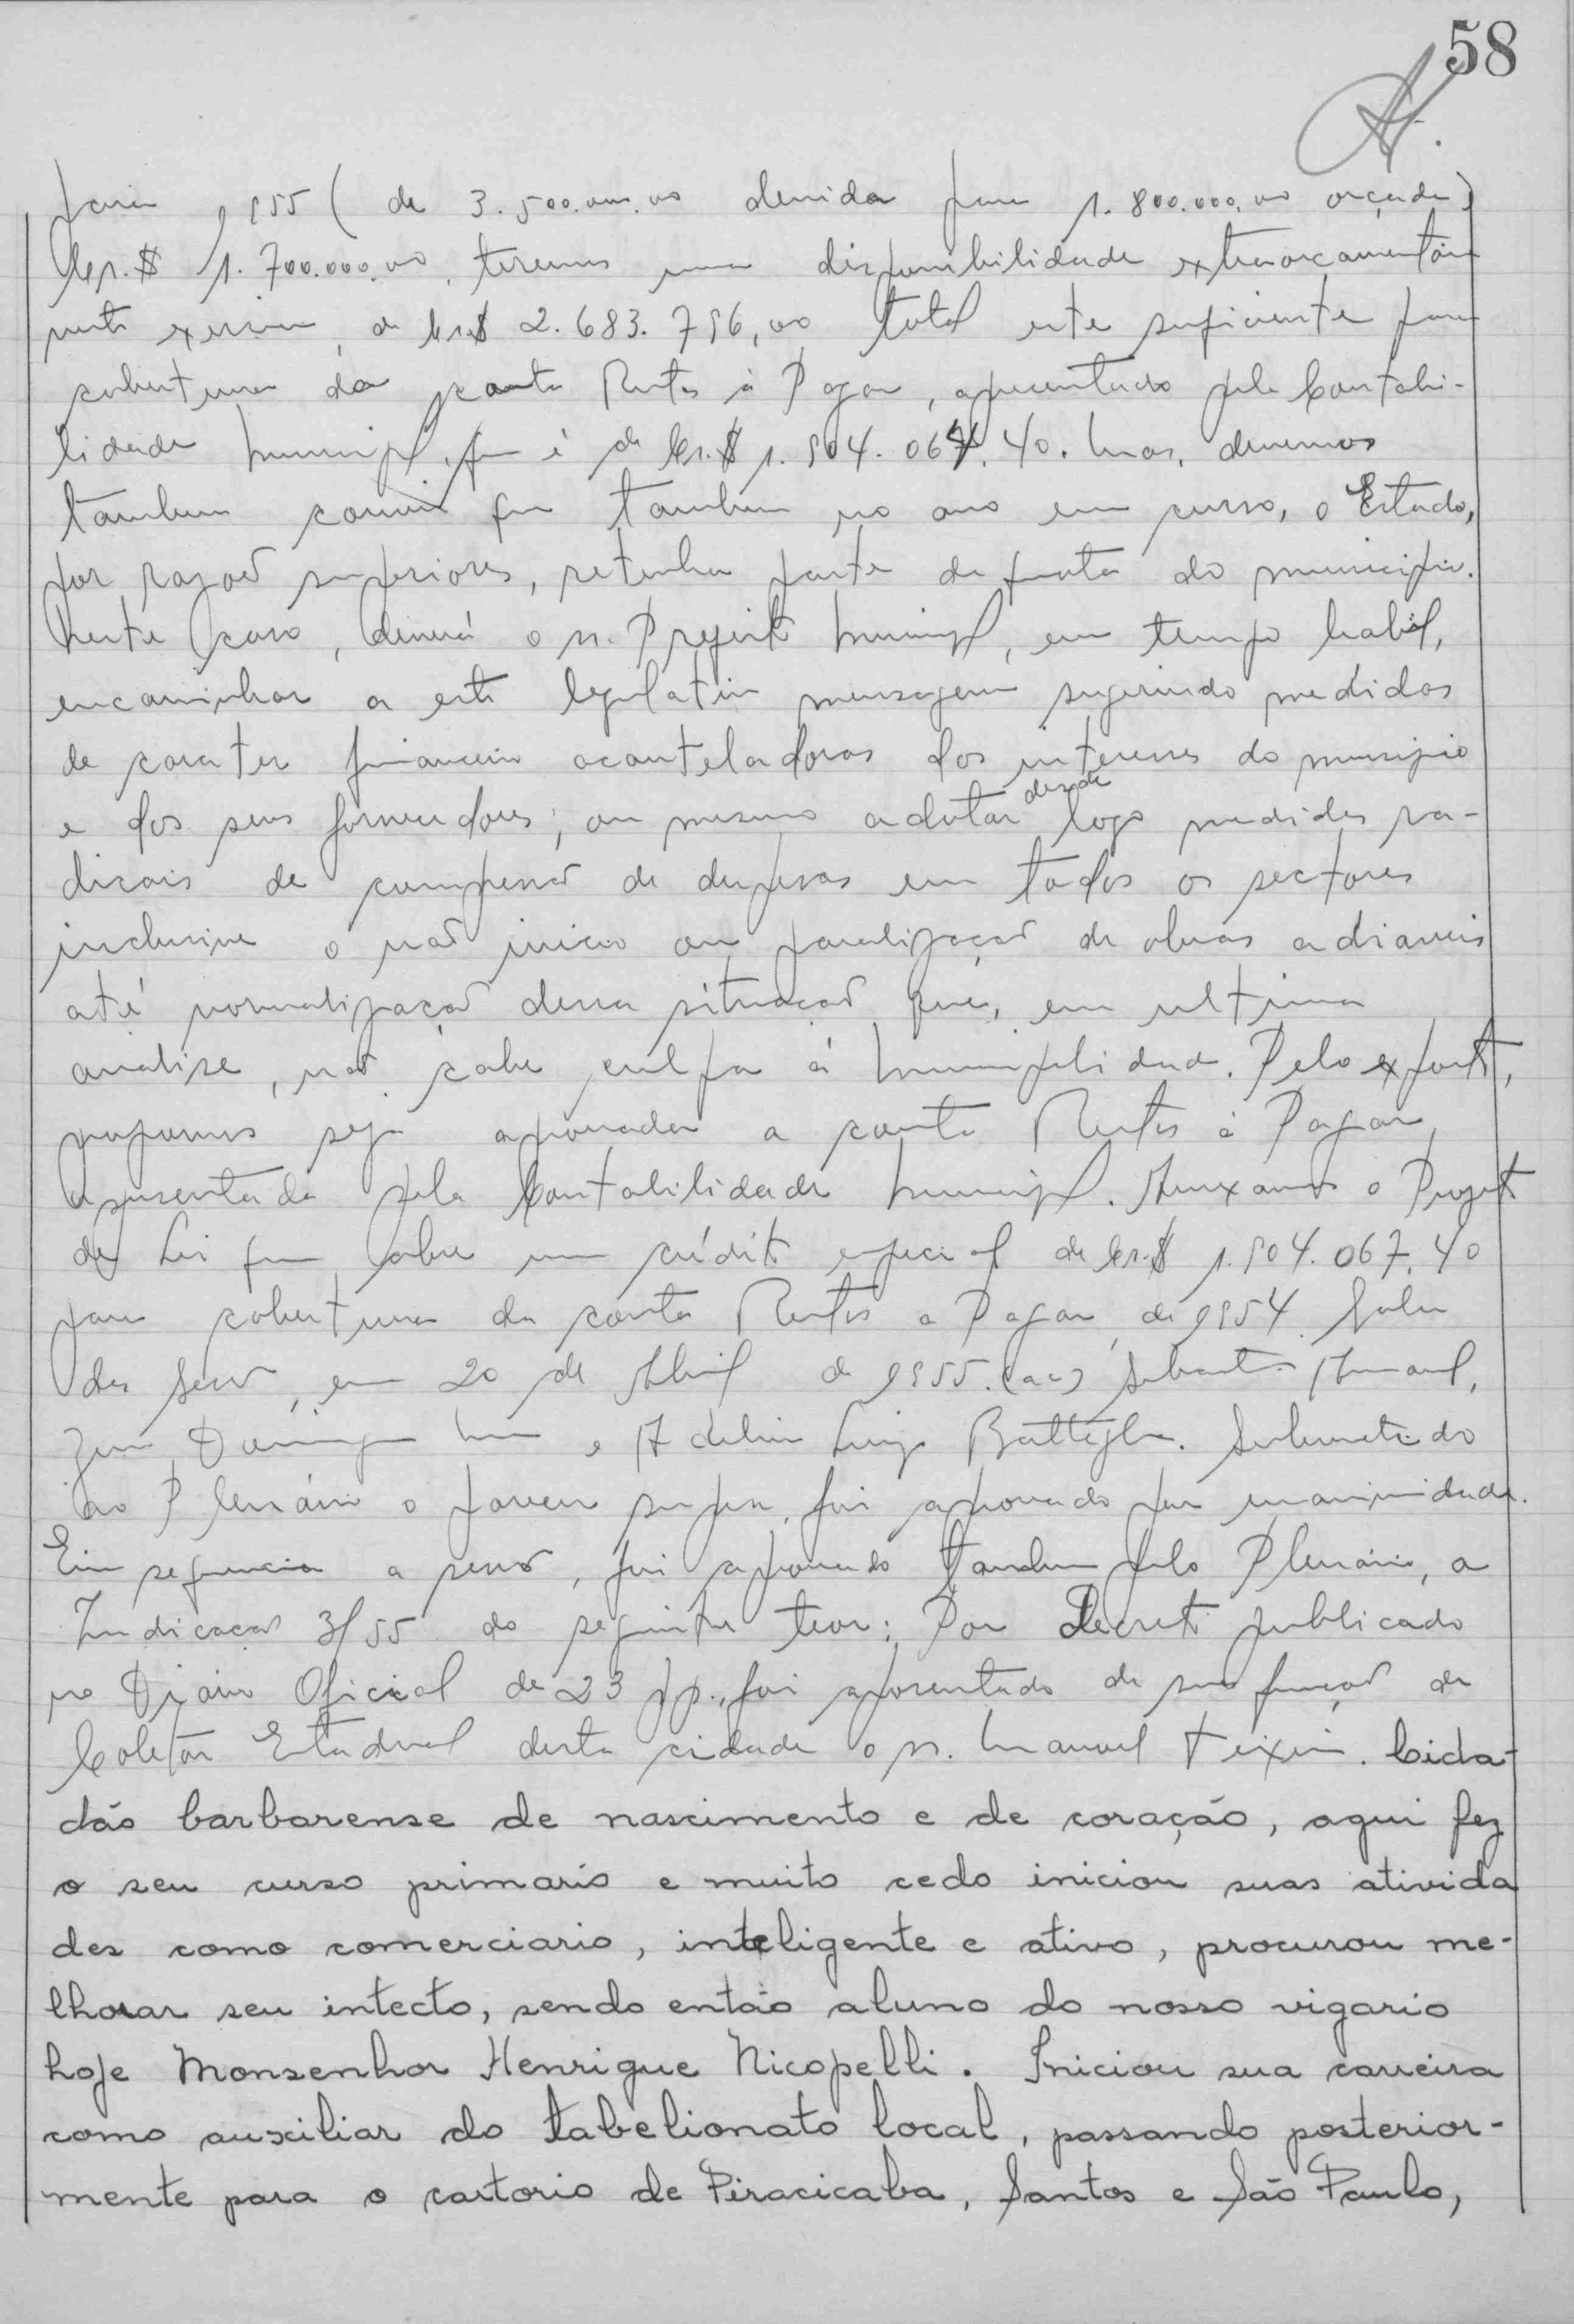 58
para 1955 (de 3.500.000,00 devida para 1.800.000,00 orçada)
Cr.$ 1.700.000,00, teremos uma disponibilidade extraorçamentária
neste exercicio, de Cr.$ 2.683.796,00 total este suficiente para
cobertura da conta Restos à Pagar, apresentado pela Contabi-
lidade Municipal, que é de Cr.$ 1.904.067,40. Mas, devemos
tambem convir que tambem no ano em curso, o Estado,
por razões superiores, retenha parte da quota do municipio.
Neste caso, deverá o sr. Prefeito Municipal, em tempo habil,
encaminhar a este legislativo mensagem sugerindo medidas
de carater financeiro acauteladoras dos interesses do municipio
e dos seus fornecedores; ou mesmo adotar desde logo medidas ra-
dicais de compressão de despesas em todos os sectores
inclusive o não inicio ou paralização de obras adiaveis
até normalização dessa situação que, em ultima
analise, não cabe culpa à Municipalidade. Pelo exposto,
propomos seja aprovada a conta Restos à Pagar,
apresentada pela Contabilidade Municipal. Anexamos o Projeto
de Lei que abre um crédito especial de Cr.$ 1.904.067,40
para cobertura da conta Restos a Pagar, de 1954. Sala
das Sessões, em 20 de Abril de 1955. (aa)
e Luiz Battaglia. Submetido
ao Plenário o parecer supra, foi aprovado por unanimidade.
Em sequencia a sessão, foi aprovado tambem pelo Plenário, a
Indicação 3/55 do seguinte teor: Por Decreto publicado
no Diário Oficial de 23 pp., foi aposentado de sua função de
Coletor Estadual desta cidade o sr. Manuel Teixeira. Cida-
dão barbarense de nascimento e de coração, aqui fez
o seu curso primario e muito cedo iniciou suas ativida
des como comerciario, inteligente e ativo, procurou me-
lhorar seu intecto, sendo então aluno do nosso vigario
hoje Monsenhor Henrique Nicopelli. Iniciou sua carreira
como auxiliar do tabelionato local, passando posterior-
mente para o cartorio de Piracicaba, Santos e São Paulo,